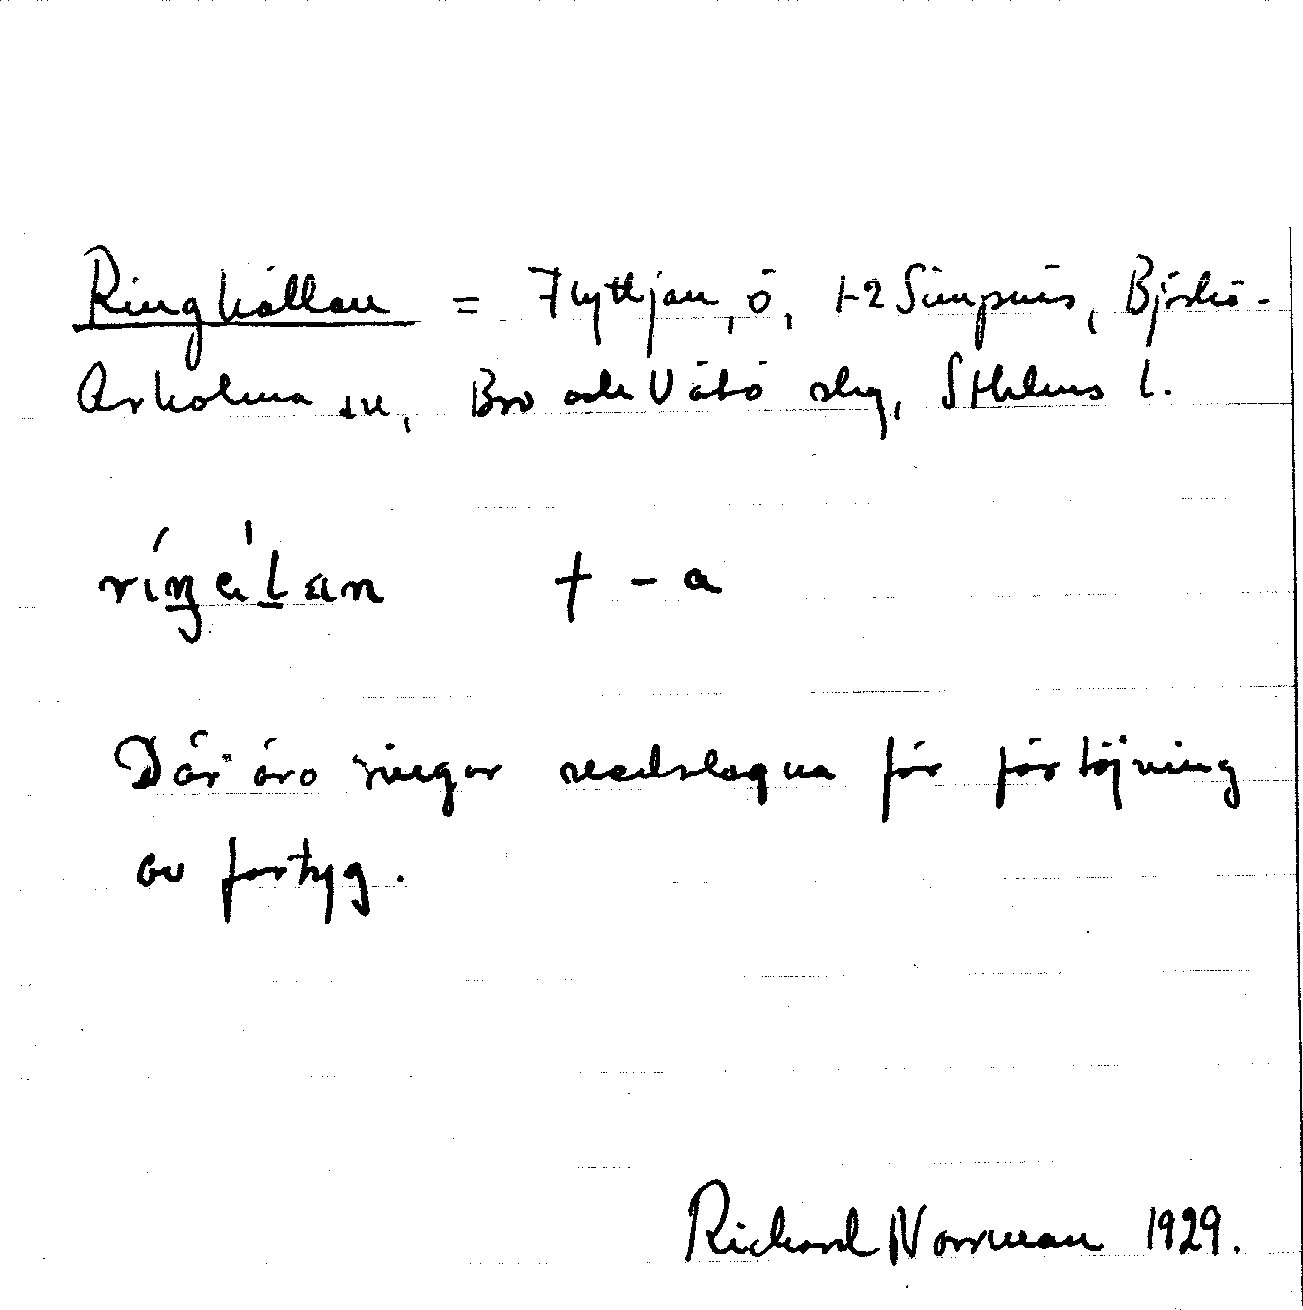 Ringhällan = Flyttjan, ö, 1-2 Simpnäs, Björkö-
Arholma sn, Bro och Vätö skg, Sthlms l.
+ - a
Där äro ringar nedslagna för förtöjning
av fartyg.
Richard Norrman 1929.